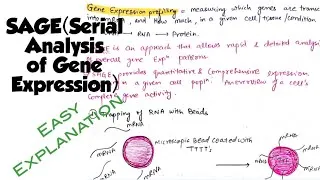 SAGE(Serial
Analysis
of Gene
Expression)
EASY
EXPLANATION
Gene Expression profiling - measuring which genes are transc
and How much, in a given cell/tissue/condition
RNA → Protein.
is an approach that allows rapid & detailed analysis
overall gene Expn patterns.
SAGE provides quantitative & comprehensive expression
in a given cell popn. An overview of a cell's
complete gene activity.
Trapping of RNA with Beads
mRNA
mRNA
mRNA
Microscopic Bead coated with
TTTT's
mRNA